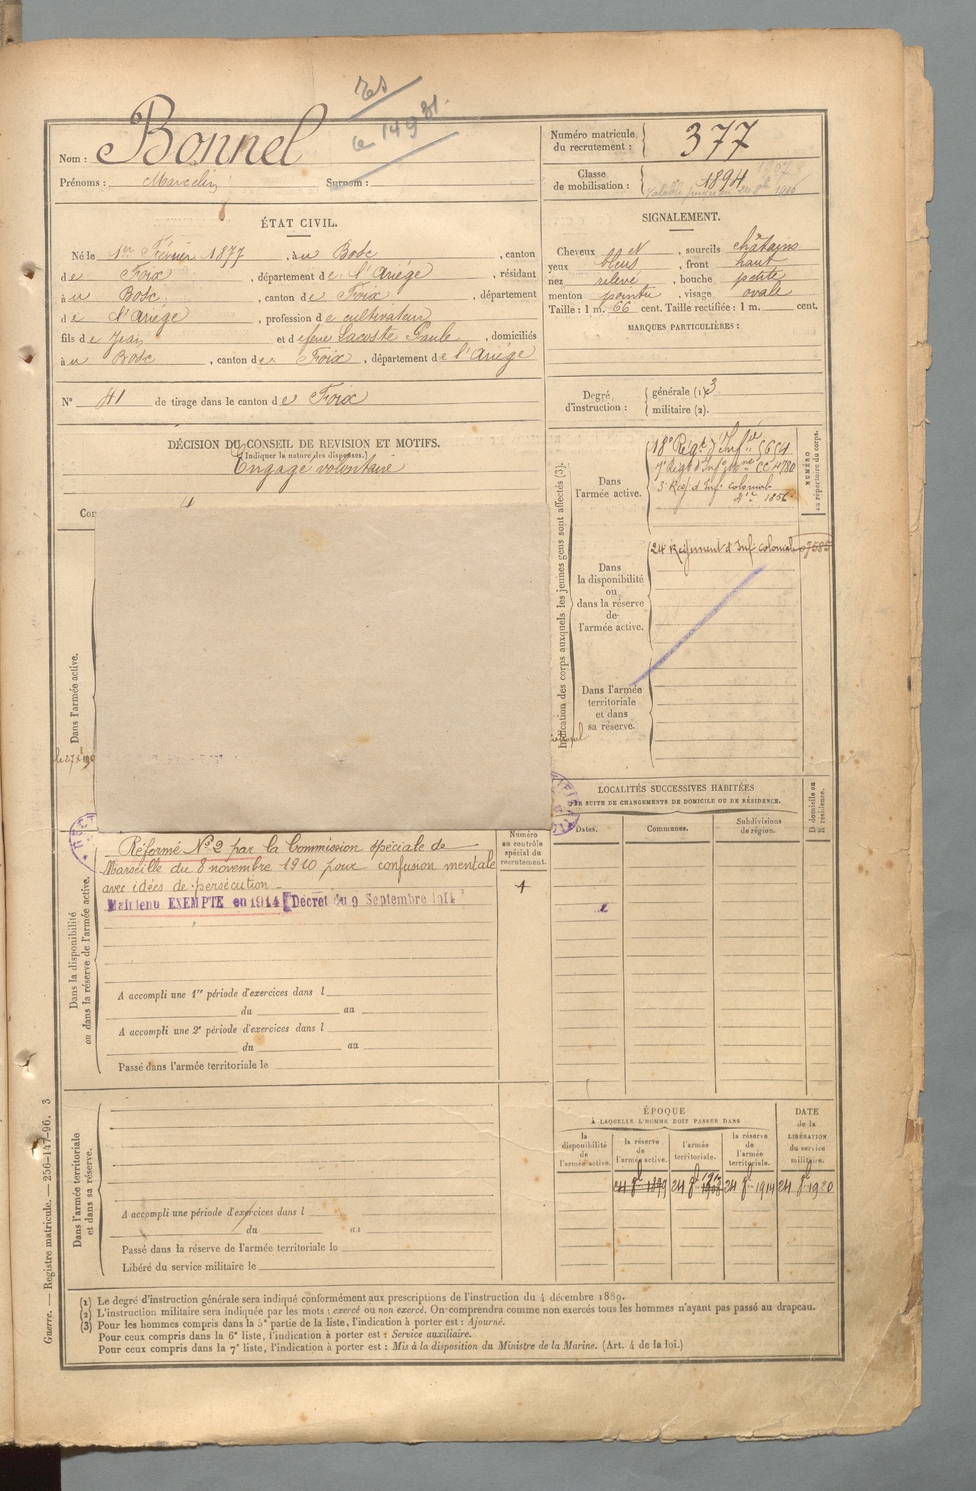 Nom : Bonnel
Prénoms : Marcelin Surnom :
Numéro matricule
du recrutement : 377
Classe
de mobilisation : 1894
ÉTAT CIVIL.
Né le 1er Février 1877, à u Bosc, canton
de Foix, département de l'Ariége, résidant
à u Bosc, canton de Foix, département
de l'Ariége, profession de cultivateur
fils de Jean et de feue Lacoste Paule, domiciliés
à u Bosc, canton de Foix, département de l'Ariége
N° 41 de tirage dans le canton de Foix
SIGNALEMENT.
Cheveux et, sourcils châtains
yeux bleus, front haut
nez relevé, bouche petite
menton pointu, visage ovale
Taille : 1 m. 66 cent. Taille rectifiée : 1 m. cent.
MARQUES PARTICULIÈRES :
Degré
d'instruction :
générale (1) 3
militaire (2).
DÉCISION DU CONSEIL DE REVISION ET MOTIFS.
(Indiquer la nature des dispenses.)
Engagé volontaire
Indication des corps auxquels les jeunes gens sont affectés (3).
NUMÉRO
au répertoire du corps.
Dans
l'armée active.
18e Régt d'Infie
3e Reg d'Inf. coloniale
1856
Dans
la disponibilité
ou
dans la réserve
de
l'armée active.
24e Régiment d'Inf coloniale
Dans l'armée
territoriale
et dans
sa réserve.
Dans l'armée active.
LOCALITÉS SUCCESSIVES HABITÉES
PAR SUITE DE CHANGEMENTS DE DOMICILE OU DE RÉSIDENCE.
D. domicile ou
R. résidence.
Dates.
Communes.
Subdivisions
de région.
Numéro
au contrôle
spécial du
recrutement.
Dans la disponibilité
ou dans la réserve de l'armée active.
Réformé N° 2 par la Commission spéciale de
Marseille du 8 novembre 1910 pour confusion mentale
avec idées de persécution
Maintenu EXEMPTE en 1914 [Décret du 9 Septembre 1914
A accompli une 1re période d'exercices dans l
du au
A accompli une 2e période d'exercices dans l
du au
Passé dans l'armée territoriale le
Dans l'armée territoriale
et dans sa réserve.
A accompli une période d'exercices dans l
du au
Passé dans la réserve de l'armée territoriale le
Libéré du service militaire le
ÉPOQUE
À LAQUELLE L'HOMME DOIT PASSER DANS
DATE
de la
LIBÉRATION
du service
militaire.
la
disponibilité
de
l'armée active.
la réserve
de
l'armée active.
l'armée
territoriale.
la réserve
de
l'armée
territoriale.
24 8bre 1899
24 8bre 1914
24 8bre 1920
(1) Le degré d'instruction générale sera indiqué conformément aux prescriptions de l'instruction du 4 décembre 1889.
(2) L'instruction militaire sera indiquée par les mots : exercé ou non exercé. On comprendra comme non exercés tous les hommes n'ayant pas passé au drapeau.
(3) Pour les hommes compris dans la 5e partie de la liste, l'indication à porter est : Ajourné.
Pour ceux compris dans la 6e liste, l'indication à porter est : Service auxiliaire.
Pour ceux compris dans la 7e liste, l'indication à porter est : Mis à la disposition du Ministre de la Marine. (Art. 4 de la loi.)
Guerre. — Registre matricule. — 256-147-96. 3